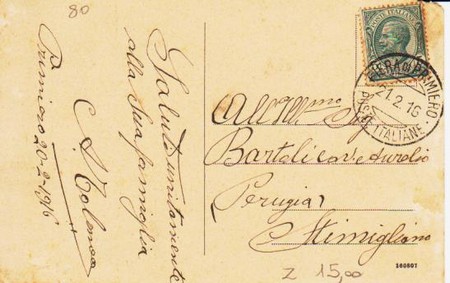 80
Saluti unitamente
alla Sua famiglia
Primiero 20-2-916
POSTE ITALIANE
FIERA DI PRIMIERO
21.2.16
POSTE ITALIANE
All'Ill.mo Sig
Bartoli cav. Aurelio
(Perugia)
Stimigliano
560801
Z 15,00